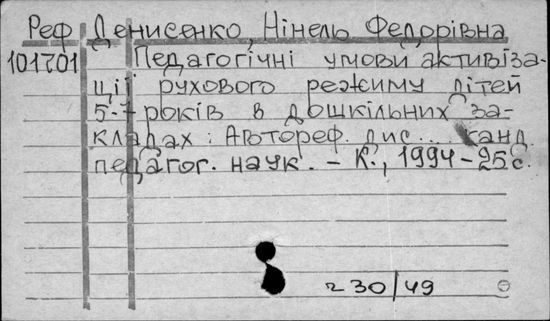 Реф Денисенко, Нінель Федорівна
101701 Педагогічні умови активіза-
ції рухового режиму дітей
5-7 років в дошкільних за-
кладах : Автореф. дис... канд.
педагог. наук. – К., 1994 – 25 с.
г 30/49